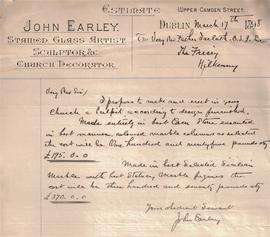 Estimate
Upper Camden Street,
John Earley,
Stained Glass Artist,
Sculptor &
Church Decorator.
Dublin March 17th 1898
To Very Rev Father
The Friary
Kilkenny
Very Rev Sir,
I propose to make and erect in your
Church a Pulpit according to design furnished,
Made entirely in best Caen Stone executed
in best manner, colored marble columns as selected
the cost will be One hundred and ninety five pounds stg
£195.0.0
Made in best Selected Sicilian
Marble with best Statuary Marble figures the
cost will be three hundred and seventy pounds stg
£370.0.0
Your obedient Servant
John Earley